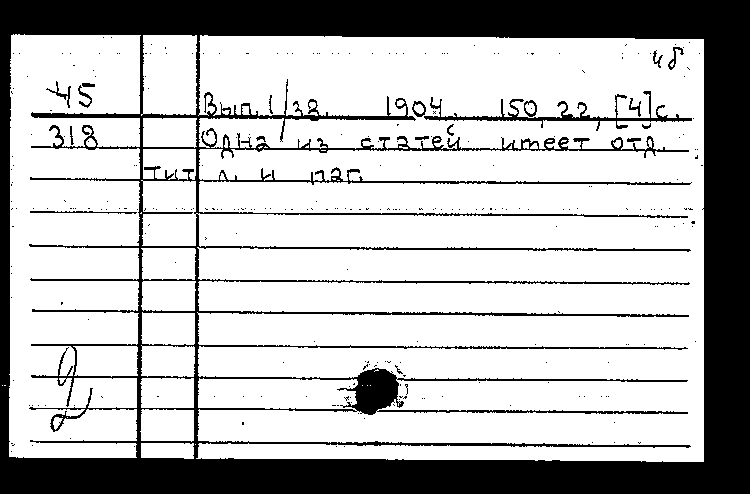 48
45 Вып. 1/38. 1904. 150, 22, [4] с.
318 Одна из статей имеет отд.
тит. л. и паг.
2